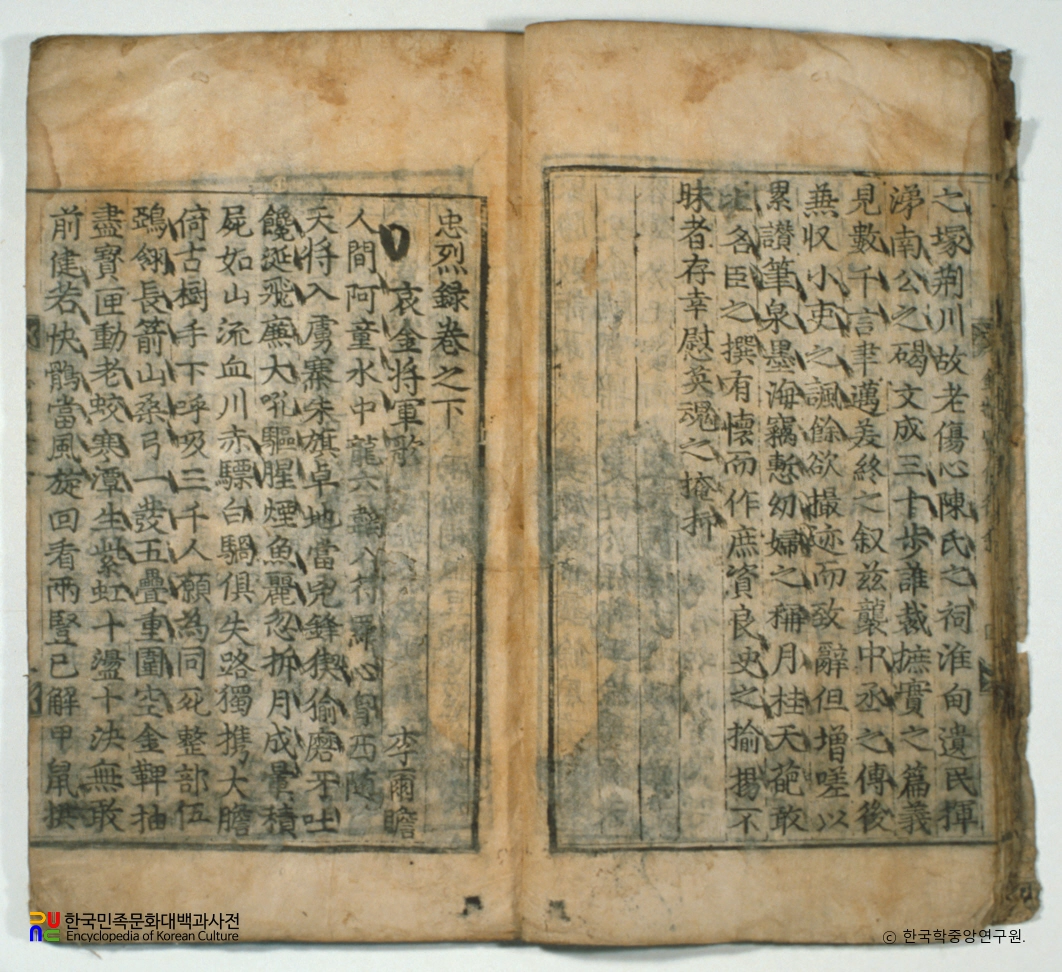 之塚荆川故老傷心陳氏之祠淮甸遺民揮
涕南公之碣文成三十步誰裁摭實之篇義
見數千言聿邁羨終之叙玆襲中丞之傳後
無収小吏之諷餘欲撮迹而致辭但增嗟以
累讚筆泉墨海竊慙幼婦之稱月桂天葩敢
名臣之撰有懷而作庶資良史之揄揚不
昧者存幸慰英魂之掩抑
忠烈録卷之下
哀金將軍歌 李爾瞻
人間阿童水中龍六韜入符羅心胷西随
天將入虜寨朱旗卓地當兇鋒猰㺄磨牙吐
饞涎飛廉大吼驅腥煙魚麗忽拆月成暈積
屍如山流血川赤驃白騧俱失路獨携大膽
倚古樹手下呼吸三千人願為同死整部伍
鵶翎長箭山桑弓一發五疊重圍空金鞞抽
盡寳匣動老蛟寒潭生紫虹十盪十決無敢
前健若快鶻當風旋回看兩豎已解甲鼠拱
한국민족문화대백과사전
Encyclopedia of Korean Culture
ⓒ 한국학중앙연구원.